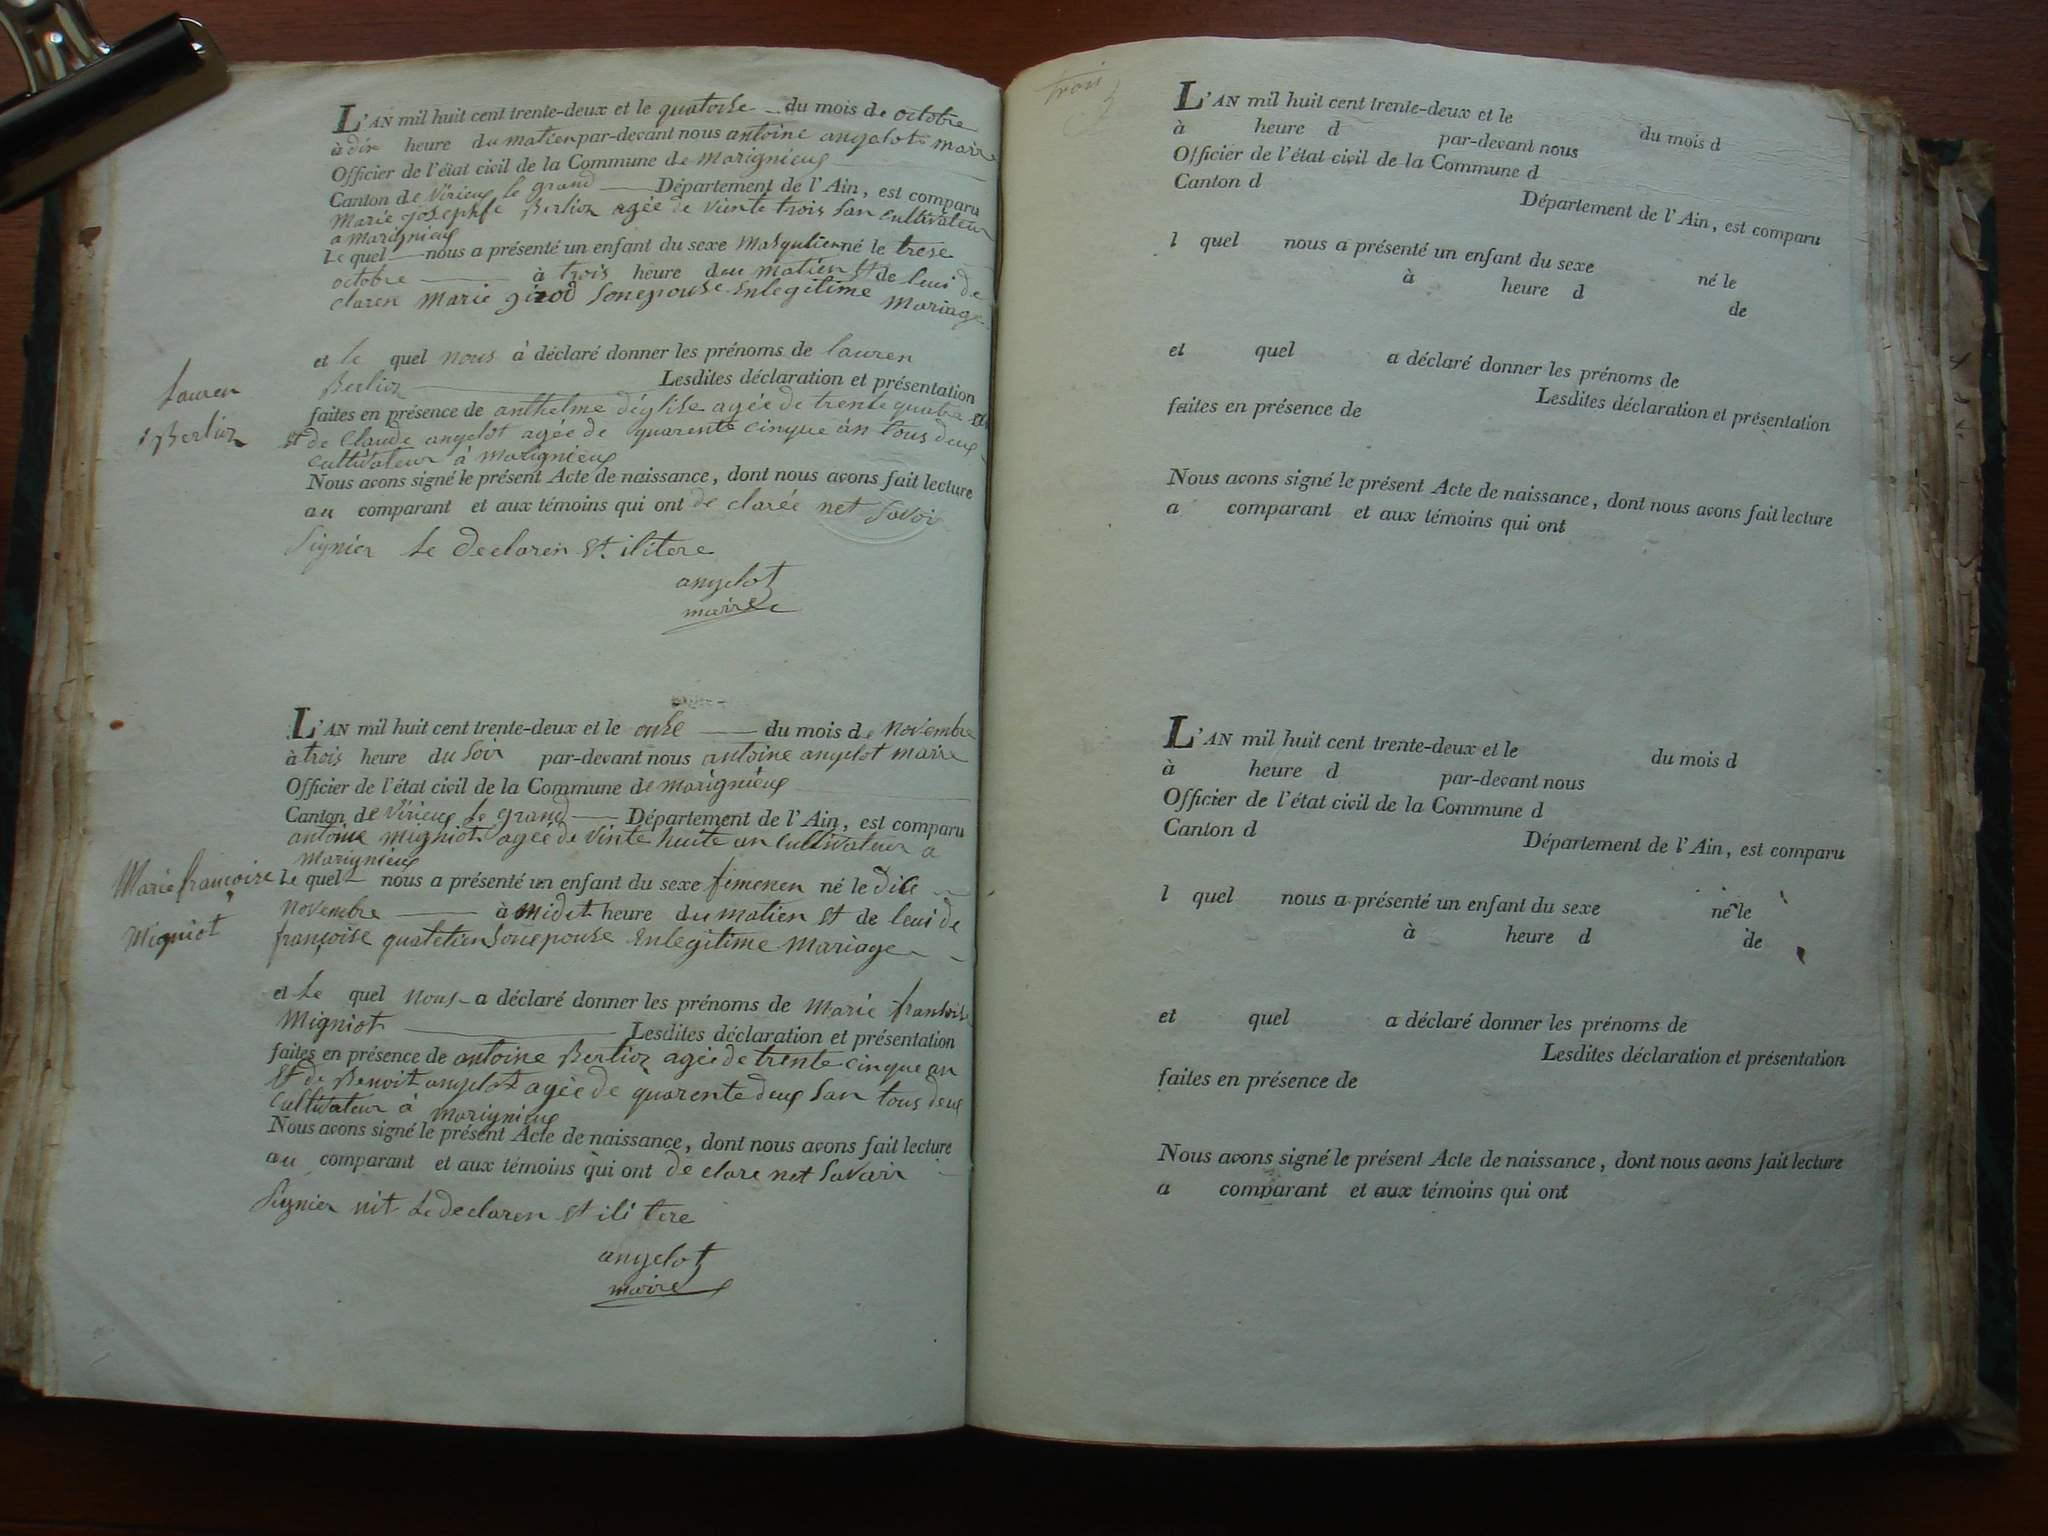 L'AN mil huit cent trente-deux et le quatorse du mois de octobre
à dix heure du matien par-devant nous antoine angelot maire
Officier de l'état civil de la Commune de marignieus
Canton de virieus le grand Département de l'Ain, est comparu
marie josephfe Berlioz agée de viente trois san cultivateur
a marignieus
le quel nous a présenté un enfant du sexe masqulien né le trese
octobre à trois heure dau matien st de leui de
claren marie girod sonepouse Enlegitime mariage
et le quel nous à déclaré donner les prénoms de lauren
Berlioz Lesdites déclaration et présentation
Lauren
Berlioz
faites en présence de anthelme déglise agée de trente quatre
st de claude angelot agée de quarente cinque an tous deus
cultivateur à marignieus
Nous avons signé le présent Acte de naissance, dont nous avons fait lecture
au comparant et aux témoins qui ont de clarée net savoir
signier le declaren st ilitere
angelot
maire
L'AN mil huit cent trente-deux et le onse du mois de novembre
à trois heure du soir par-devant nous antoine angelot maire
Officier de l'état civil de la Commune de marignieus
Canton de virieus le grand Département de l'Ain, est comparu
antoine migniot agée de vinte huite an cultivateur a
marignieus
Marie françoise
Migniot
le quel nous a présenté un enfant du sexe fimenen né le dice
novembre à midit heure du matien st de leui de
françoise quatetien sonepouse Enlegitime mariage
et le quel nous a déclaré donner les prénoms de marie fransoise
Migniot Lesdites déclaration et présentation
faites en présence de antoine Berlioz agée de trente cinque an
st de Benoit angelot agée de quarente deus san tous deus
cultivateur à marignieus
Nous avons signé le présent Acte de naissance, dont nous avons fait lecture
au comparant et aux témoins qui ont de clare net savoir
signier nit le declaren st ili tere
angelot
maire
trois
L'AN mil huit cent trente-deux et le du mois d
à heure d par-devant nous
Officier de l'état civil de la Commune d
Canton d Département de l'Ain, est comparu
l quel nous a présenté un enfant du sexe né le
à heure d de
et quel a déclaré donner les prénoms de
Lesdites déclaration et présentation
faites en présence de
Nous avons signé le présent Acte de naissance, dont nous avons fait lecture
a comparant et aux témoins qui ont
L'AN mil huit cent trente-deux et le du mois d
à heure d par-devant nous
Officier de l'état civil de la Commune d
Canton d Département de l'Ain, est comparu
l quel nous a présenté un enfant du sexe né le
à heure d de
et quel a déclaré donner les prénoms de
Lesdites déclaration et présentation
faites en présence de
Nous avons signé le présent Acte de naissance, dont nous avons fait lecture
a comparant et aux témoins qui ont